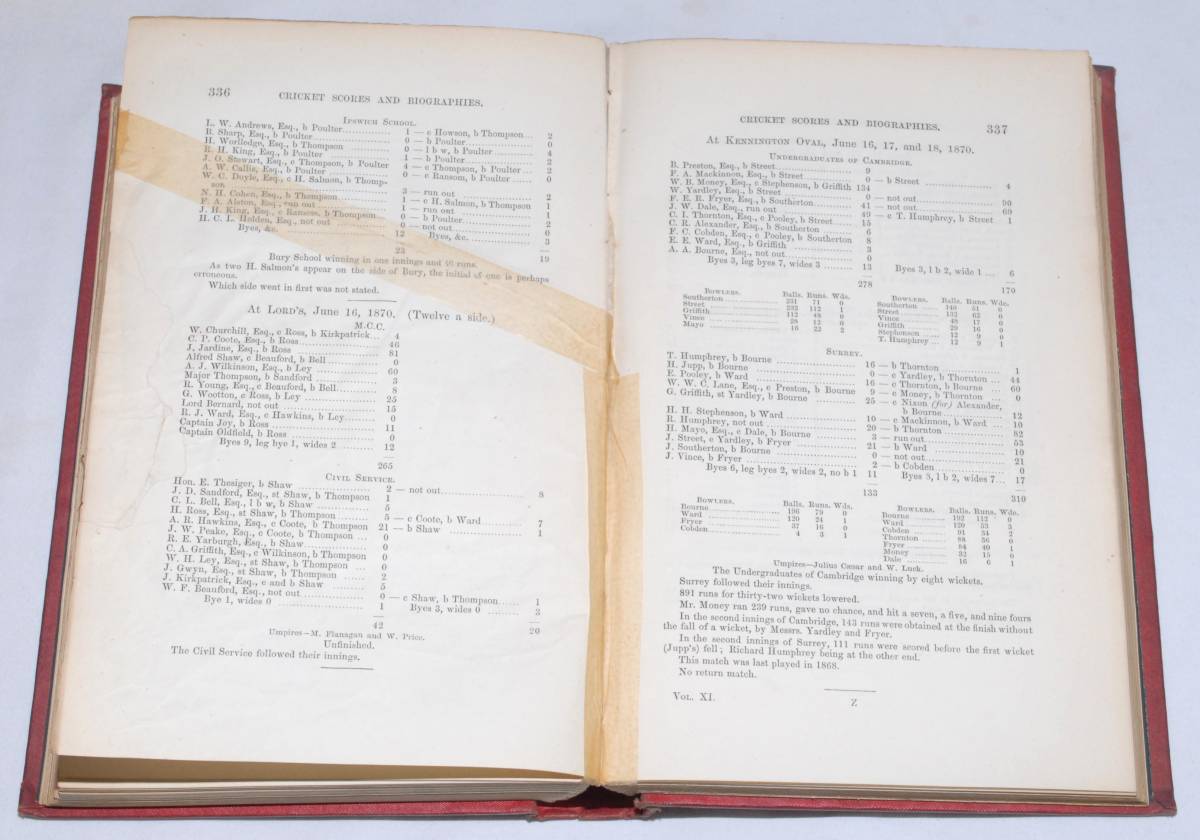 336 CRICKET SCORES AND BIOGRAPHIES.
IPSWICH SCHOOL.
L. W. Andrews, Esq., b Poulter 1 — c Howson, b Thompson 2
B. Sharp, Esq., b Poulter 0 — b Poulter 0
H. Worlledge, Esq., b Thompson 0 — l b w, b Poulter 4
R. H. King, Esq., b Poulter 1 — b Poulter 2
J. O. Stewart, Esq., c Thompson, b Poulter 4 — c Thompson, b Poulter 2
A. W. Callis, Esq., b Poulter 0 — c Ransom, b Poulter 0
W. C. Doyle, Esq., c H. Salmon, b Thomp-
son 3 — run out 2
N. H. Cohen, Esq., b Thompson 1 — c H. Salmon, b Thompson 1
F. A. Alston, Esq., run out 1 — run out 2
J. H. King, Esq., c Ransom, b Thompson 0 — b Poulter 2
H. C. L. Holden, Esq., not out 0 — not out 0
Byes, &c. 12 Byes, &c. 3
23 19
Bury School winning in one innings and runs.
As two H. Salmon's appear on the side of Bury, the initial of one is perhaps
erroneous.
Which side went in first was not stated.
At LORD'S, June 16, 1870. (Twelve a side.)
M.C.C.
W. Churchill, Esq., c Ross, b Kirkpatrick 4
C. P. Coote, Esq., b Ross 46
J. Jardine, Esq., b Ross 81
Alfred Shaw, c Beauford, b Bell 0
A. J. Wilkinson, Esq., b Ley 60
Major Thompson, b Sandford 3
R. Young, Esq., c Beauford, b Bell 8
G. Wootton, c Ross, b Ley 25
Lord Bernard, not out 15
R. J. Ward, Esq., c Hawkins, b Ley 0
Captain Joy, b Ross 11
Captain Oldfield, b Ross 0
Byes 9, leg bye 1, wides 2 12
265
CIVIL SERVICE.
Hon. E. Thesiger, b Shaw 2 — not out 8
J. D. Sandford, Esq., st Shaw, b Thompson 1
C. L. Bell, Esq., l b w, b Shaw 5
H. Ross, Esq., st Shaw, b Thompson 5 — c Coote, b Ward 7
A. R. Hawkins, Esq., c Coote, b Thompson 21 — b Shaw 1
J. W. Peake, Esq., c Coote, b Thompson 0
R. E. Yarburgh, Esq., b Shaw 0
C. A. Griffith, Esq., c Wilkinson, b Thompson 0
W. H. Ley, Esq., st Shaw, b Thompson 0
J. Gwyn, Esq., st Shaw, b Thompson 2
J. Kirkpatrick, Esq., c and b Shaw 5
W. F. Beauford, Esq., not out 0 — c Shaw, b Thompson 1
Bye 1, wides 0 1 Byes 3, wides 0 3
42 20
Umpires—M. Flanagan and W. Price.
Unfinished.
The Civil Service followed their innings.
CRICKET SCORES AND BIOGRAPHIES. 337
At KENNINGTON OVAL, June 16, 17, and 18, 1870.
UNDERGRADUATES OF CAMBRIDGE.
B. Preston, Esq., b Street 9
F. A. Mackinnon, Esq., b Street 0 — b Street 4
W. B. Money, Esq., c Stephenson, b Griffith 134
W. Yardley, Esq., b Street 0 — not out 90
F. E. R. Fryer, Esq., b Southerton 41 — not out 69
J. W. Dale, Esq., run out 49 — c T. Humphrey, b Street 1
C. I. Thornton, Esq., c Pooley, b Street 15
C. R. Alexander, Esq., b Southerton 6
F. C. Cobden, Esq., c Pooley, b Southerton 8
E. E. Ward, Esq., b Griffith 3
A. A. Bourne, Esq., not out 0
Byes 3, leg byes 7, wides 3 13 Byes 3, l b 2, wide 1 6
278 170
BOWLERS. Balls. Runs. Wds. BOWLERS. Balls. Runs. Wds.
Southerton 231 71 0 Southerton 140 51 0
Street 232 112 1 Street 132 62 0
Griffith 112 48 0 Vince 48 17 0
Vince 28 12 0 Griffith 29 16 0
Mayo 16 22 2 Stephenson 12 9 0
T. Humphrey 12 9 1
SURREY.
T. Humphrey, b Bourne 16 — b Thornton 1
H. Jupp, b Bourne 0 — c Yardley, b Thornton 44
E. Pooley, b Ward 16 — c Thornton, b Bourne 60
W. W. C. Lane, Esq., c Preston, b Bourne 9 — c Money, b Thornton 0
G. Griffith, st Yardley, b Bourne 25 — c Nixon (for) Alexander,
b Bourne 12
H. H. Stephenson, b Ward 10 — c Mackinnon, b Ward 10
R. Humphrey, not out 20 — b Thornton 82
H. Mayo, Esq., c Dale, b Bourne 3 — run out 53
J. Street, c Yardley, b Fryer 21 — b Ward 10
J. Southerton, b Bourne 0 — not out 21
J. Vince, b Fryer 2 — b Cobden 0
Byes 6, leg byes 2, wides 2, no b 1 11 Byes 8, l b 2, wides 7 17
133 310
BOWLERS. Balls. Runs. Wds. BOWLERS. Balls. Runs. Wds.
Bourne 196 79 0 Bourne 192 112 0
Ward 120 24 1 Ward 120 53 3
Fryer 37 16 0 Cobden 91 34 2
Cobden 4 3 1 Thornton 88 56 0
Fryer 84 40 1
Money 32 15 0
Dale 16 6 1
Umpires—Julius Cæsar and W. Luck.
The Undergraduates of Cambridge winning by eight wickets.
Surrey followed their innings.
891 runs for thirty-two wickets lowered.
Mr. Money ran 239 runs, gave no chance, and hit a seven, a five, and nine fours
In the second innings of Cambridge, 143 runs were obtained at the finish without
the fall of a wicket, by Messrs. Yardley and Fryer.
In the second innings of Surrey, 111 runs were scored before the first wicket
(Jupp's) fell; Richard Humphrey being at the other end.
This match was last played in 1868.
No return match.
VOL. XI. Z